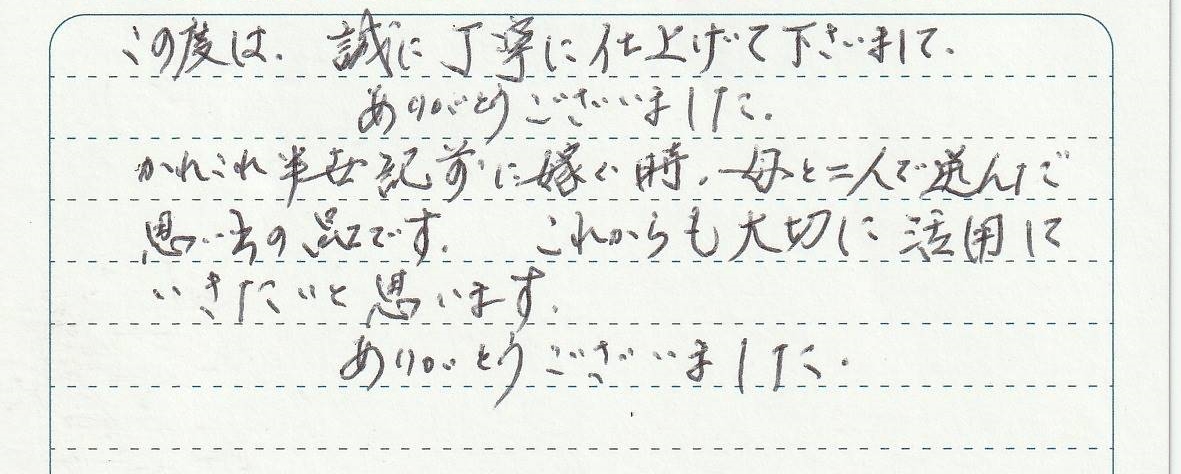 この度は、誠に丁寧に仕上げて下さいまして、
ありがとうございました。
かれこれ半世記前に嫁ぐ時、母と二人で選んだ
思い出の品です。これからも大切に活用して
いきたいと思います。
ありがとうございました。